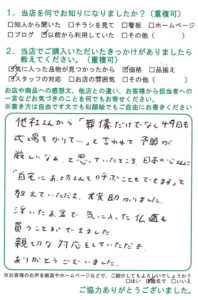 1．当店を何でお知りになりましたか？（重複可）
□知人から聞いた □チラシを見て □看板 □ホームページ
□ブログ ☑以前から利用していた □その他（　　）
2．当店でご購入いただいたきっかけがありましたら
教えてください。（重複可）
☑気に入った品物が見つかったから ☑価格 □品揃え
☑スタッフの対応 □お店の雰囲気 □その他（　　）
お店や商品への感想文、他店との違い、お客様から担当者への
一言などお気づきのことを何でもお寄せください。
※書き方は自由です文でも似顔絵でもご自由にお書きください
他社さんから「葬儀だけでなく49日も
式場をかりて…」と言われて予算が
厳しいなぁ、と思っていたところ、日本の
「自宅に お坊さんを こともできますよ」と
教えていただき、大変助かりました。
浮いたお金で、気に入った仏壇も
買うことができました。
親切な対応をしていただき、
ありがとうございました。
※お客様のお声を紙面やホームページなどで、ご紹介してもよろしいでしょうか？
□はい □匿名で □いいえ
ご協力ありがとうございました。